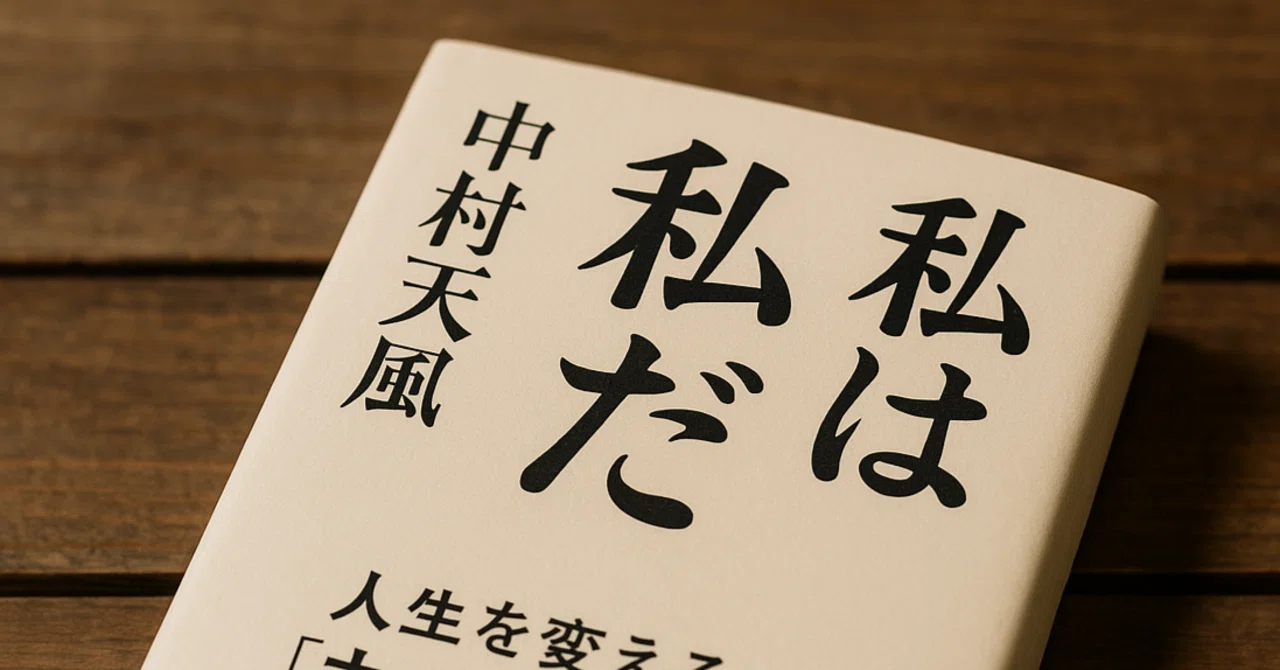 私は
私だ
中村天風
人生を変える